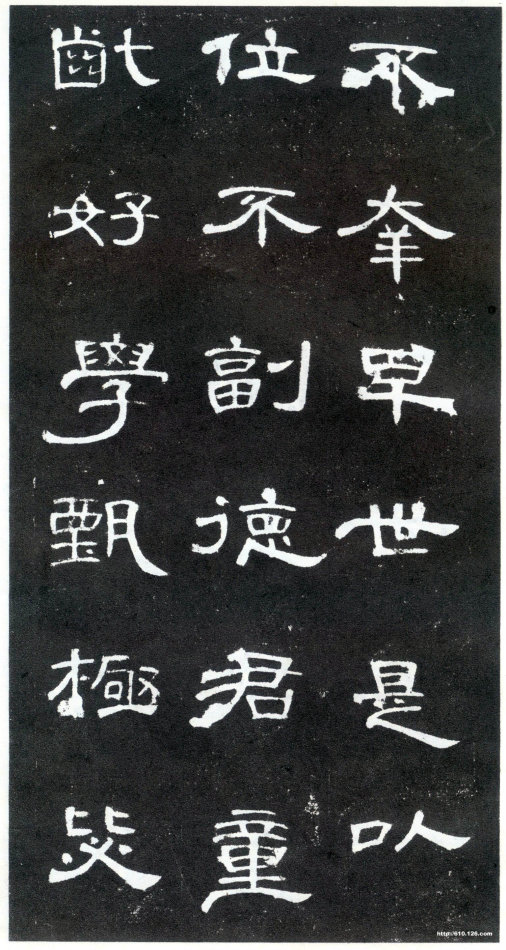 不幸早世是以
位不副德君童
齔好學甄極毖
http://610.126.com